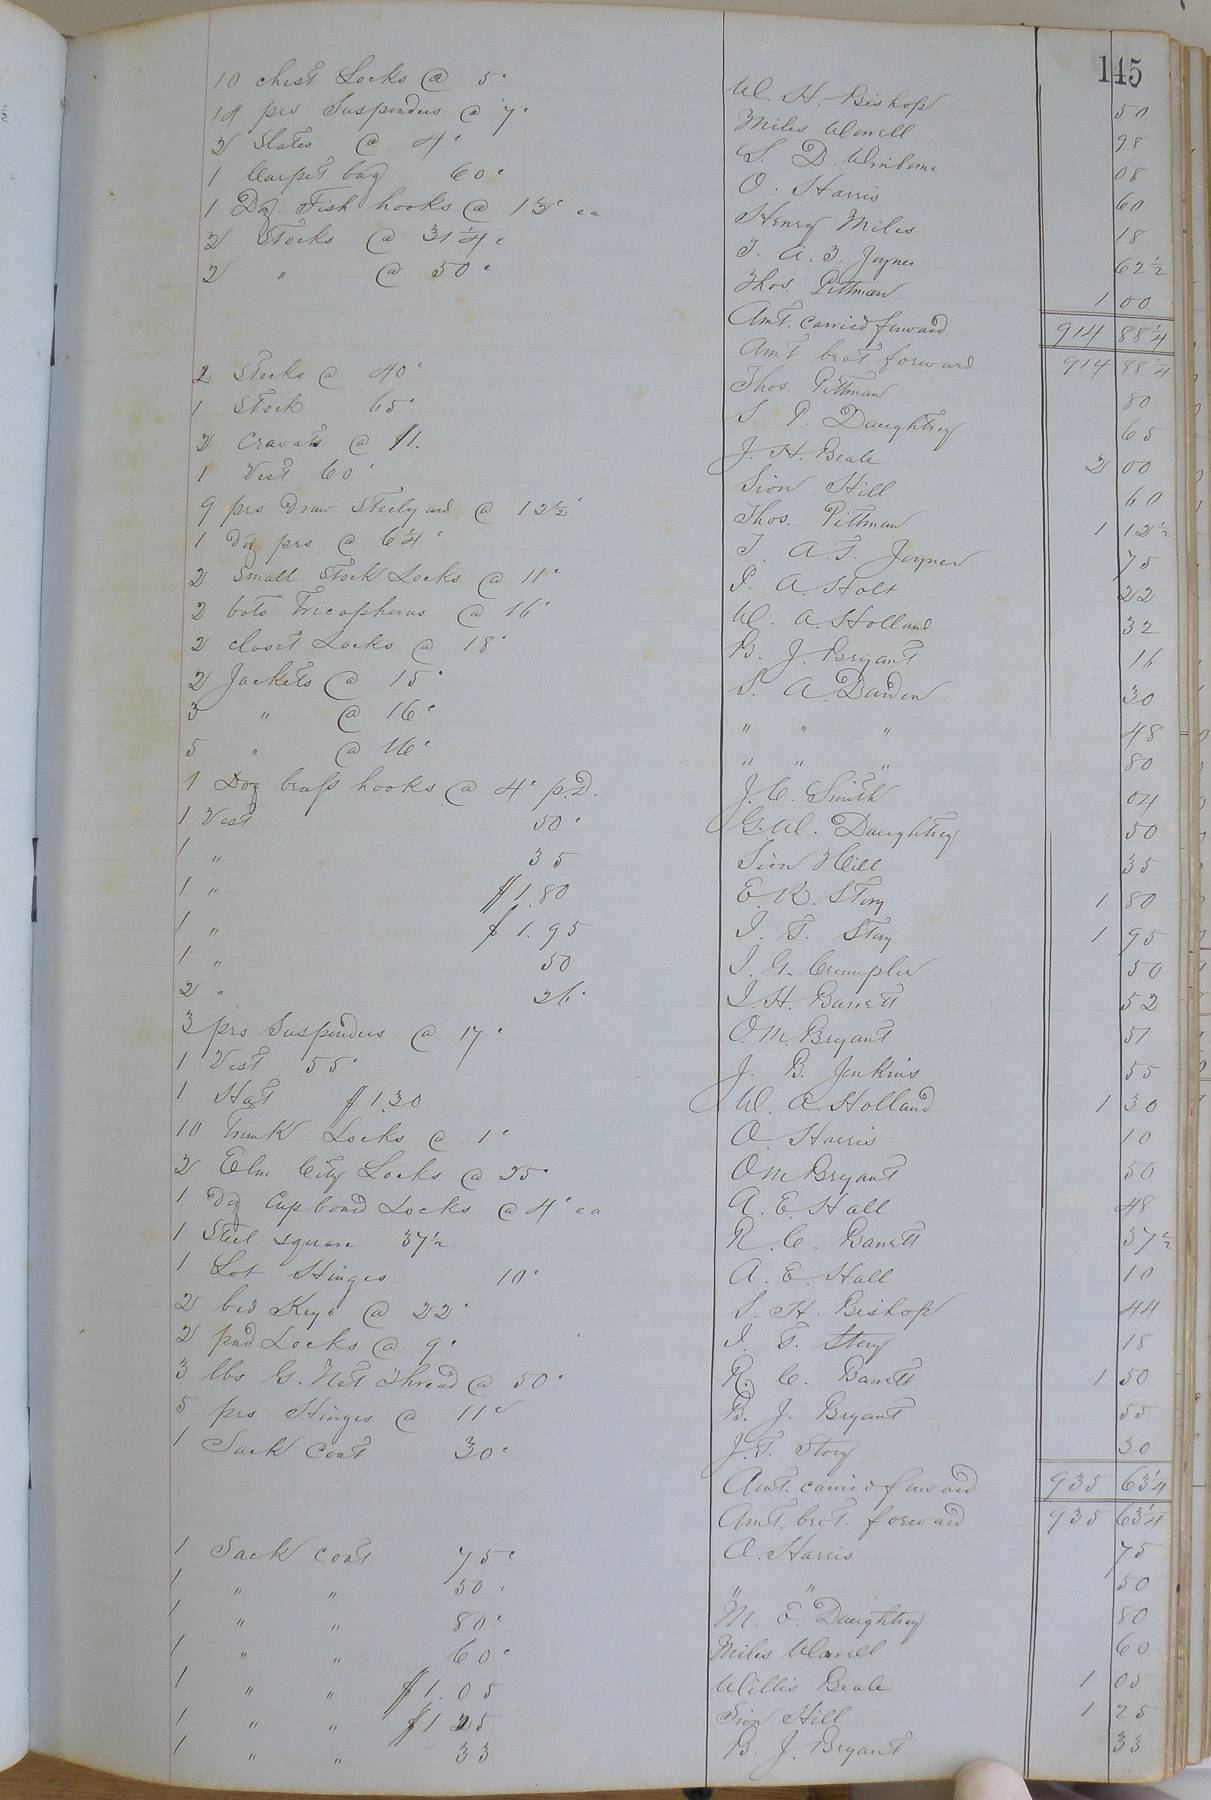 145
10 chest Locks @ 5c W. H. Bishop 50
14 prs Suspenders @ 7c Miles Worrell 98
2 Slates @ 4c S. D. Winborne 08
1 Carpet bag 60c O. Harris 60
1 Doz. Fish hooks @ 1½c ea Henry Miles 18
2 Stocks @ 31¼c T. A. J. Joyner 62½
2 " @ 50c Thos. Pittman 1 00
Amt. carried forward 914 88¼
Amt brot forward 914 88¼
2 Stocks @ 40c Thos. Pittman 80
1 Stock 65c S. P. Daughtrey 65
2 Cravats @ $1. J. H. Beale 2 00
1 Vest 60c Sion Hill 60
9 prs Draw Steelyard @ 12½c Thos. Pittman 1 12½
1 doz prs @ 6¼c T. A. J. Joyner 75
2 Small Stock Locks @ 11c P. A. Holt 22
2 bots Tricopherous @ 16c W. A. Holland 32
2 closet Locks @ 18c B. J. Bryant 16
2 Jackets @ 15c S. A. Darden 30
3 " @ 16c " " " 48
5 " @ 16c " " " 80
1 Doz brass hooks @ 4c p.D. J. C. Smith 04
1 Vest 50c G. W. Daughtrey 50
1 " 35 Sion Hill 35
1 " $1.80 E. K. Story 1 80
1 " $1.95 J. T. Story 1 95
1 " 50 J. G. Crumpler 50
2 " 26c J. H. Barrett 52
3 prs Suspenders @ 17c O. M. Bryant 51
1 Vest 55c J. B. Jenkins 55
1 Hat $1.30 W. A. Holland 1 30
10 Trunk Locks @ 1c O. Harris 10
2 Elm City Locks @ 25c O M Bryant 50
1 doz Cupboard Locks @ 4c ea A. E. Hall 48
1 Steel square 37½ R. C. Barrett 37½
1 Lot Hinges 10c A. E. Hall 10
2 bed Keys @ 22c S. H. Bishop 44
2 pad Locks @ 9c J. T. Story 18
3 lbs G. Net Thread @ 50c R. C. Barrett 1 50
5 prs Hinges @ 11c B. J. Bryant 55
1 Sack Coat 30c J. T. Story 30
Amt. carried forward 935 63¼
Amt. brot. forward 935 63¼
1 Sack coat 75c O. Harris 75
1 " " 50c " " 50
1 " " 80c M. E. Daughtrey 80
1 " " 60c Miles Worrell 60
1 " " $1.05 Willis Beale 1 05
1 " " $1 25 Sion Hill 1 25
1 " " 33 B. J. Bryant 33